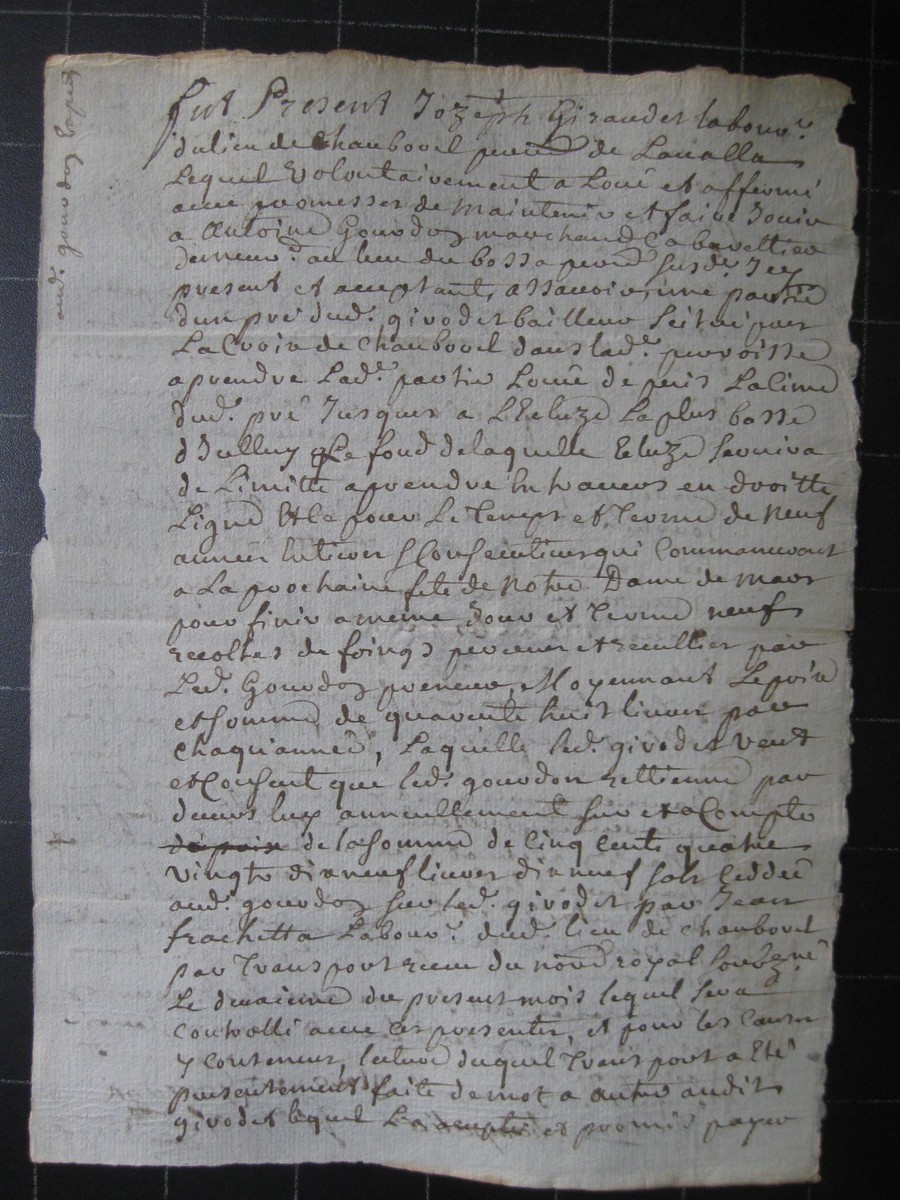 fut Present Jozeph Giraudet labour.r
du lieu de Chaubouel parr.e de Laualla
Lequel Volontairement a Loué et affermé
auec promesses de Maintenir et faire Jouir
a Antoine Gourdon marchand Cabarettier
demeur.t au lieu du bossa parr.e susd.e Jcy
present et acceptant, assauoir, une partie
dun pré dud.t girodet bailleur scitué par
La Croix de Chaubouel dans lad.e parroisse
a prendre Lad.e partie Louée depuis La Cime
dud.t pré Jusques a L'Ecluze La plus basse
Le fond de laquelle Ecluze seruira
de Limitte a prendre en trauers en droitte
Ligne pour Le temps et terme de Neuf
années Entieres Consecutiues qui Commanceront
a La prochaine fete de Notre Dame de mars
pour finir a meme Jour et terme neufs
recoltes de foings perceues et recullies par
Led.t Gourdon preneur, Moyennant Le prix
et somme de quarente huit liures par
Chaqu'année, Laquelle led.t girodet veut
et Consent que led.t gourdon rettienne par
deuers luy annuellement sur et a Compte
de la somme de Cinq Cents quatre
vingts dix neuf liures dix neuf sols Ceddée
aud.t gourdon sur led.t girodet par Jean
frachetta Labour.r dud.t lieu de Chaubouet
par transport receu du no.re royal soubzné
Le deuxieme du present mois lequel sera
Controllé auec ces presentes, et pour les Causes
y Contenues, lecture duquel transport a Eté
presentement faite de mot a autre audit
girodet lequel La accepté et promis payer
aud.t gourdon